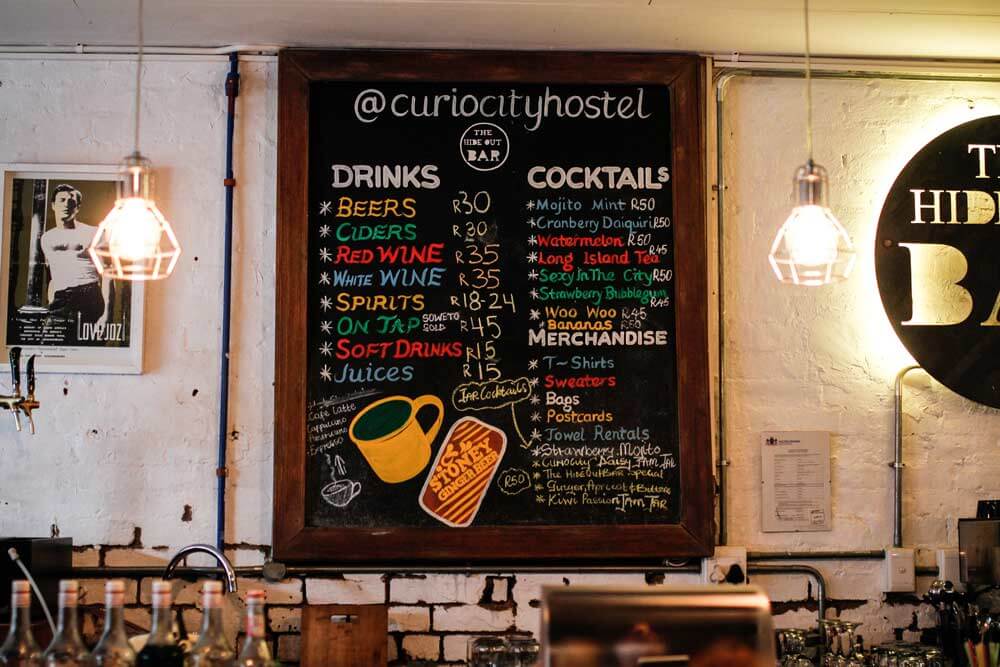 @curiocityhostel
THE
HIDE OUT
BAR
DRINKS
* BEERS R30
* CIDERS R30
* RED WINE R35
* WHITE WINE R35
* SPIRITS R18-24
* ON TAP SOWETO GOLD R45
* SOFT DRINKS R15
* JUICES R15
Cafe Latte
Cappuccino
Americano
Espresso
STONEY
GINGER BEER
COCKTAILS
* Mojito Mint R50
* Cranberry Daiquiri R50
* Watermelon R50
* Long Island Tea R45
* Sexy In The City R50
* Strawberry Bubblegum R45
* Woo Woo R45
* Bananas R50
MERCHANDISE
* T-Shirts
* Sweaters
* Bags
* Postcards
* Towel Rentals
JAR Cocktails
R50
* Strawberry Mojito
* Curiocity Daisy Jam Jar
* The HideOutBar Special
* Ginger, Apricot & Bitters
* Kiwi Passion Jam Jar
LOVEJOZI
HID
BA